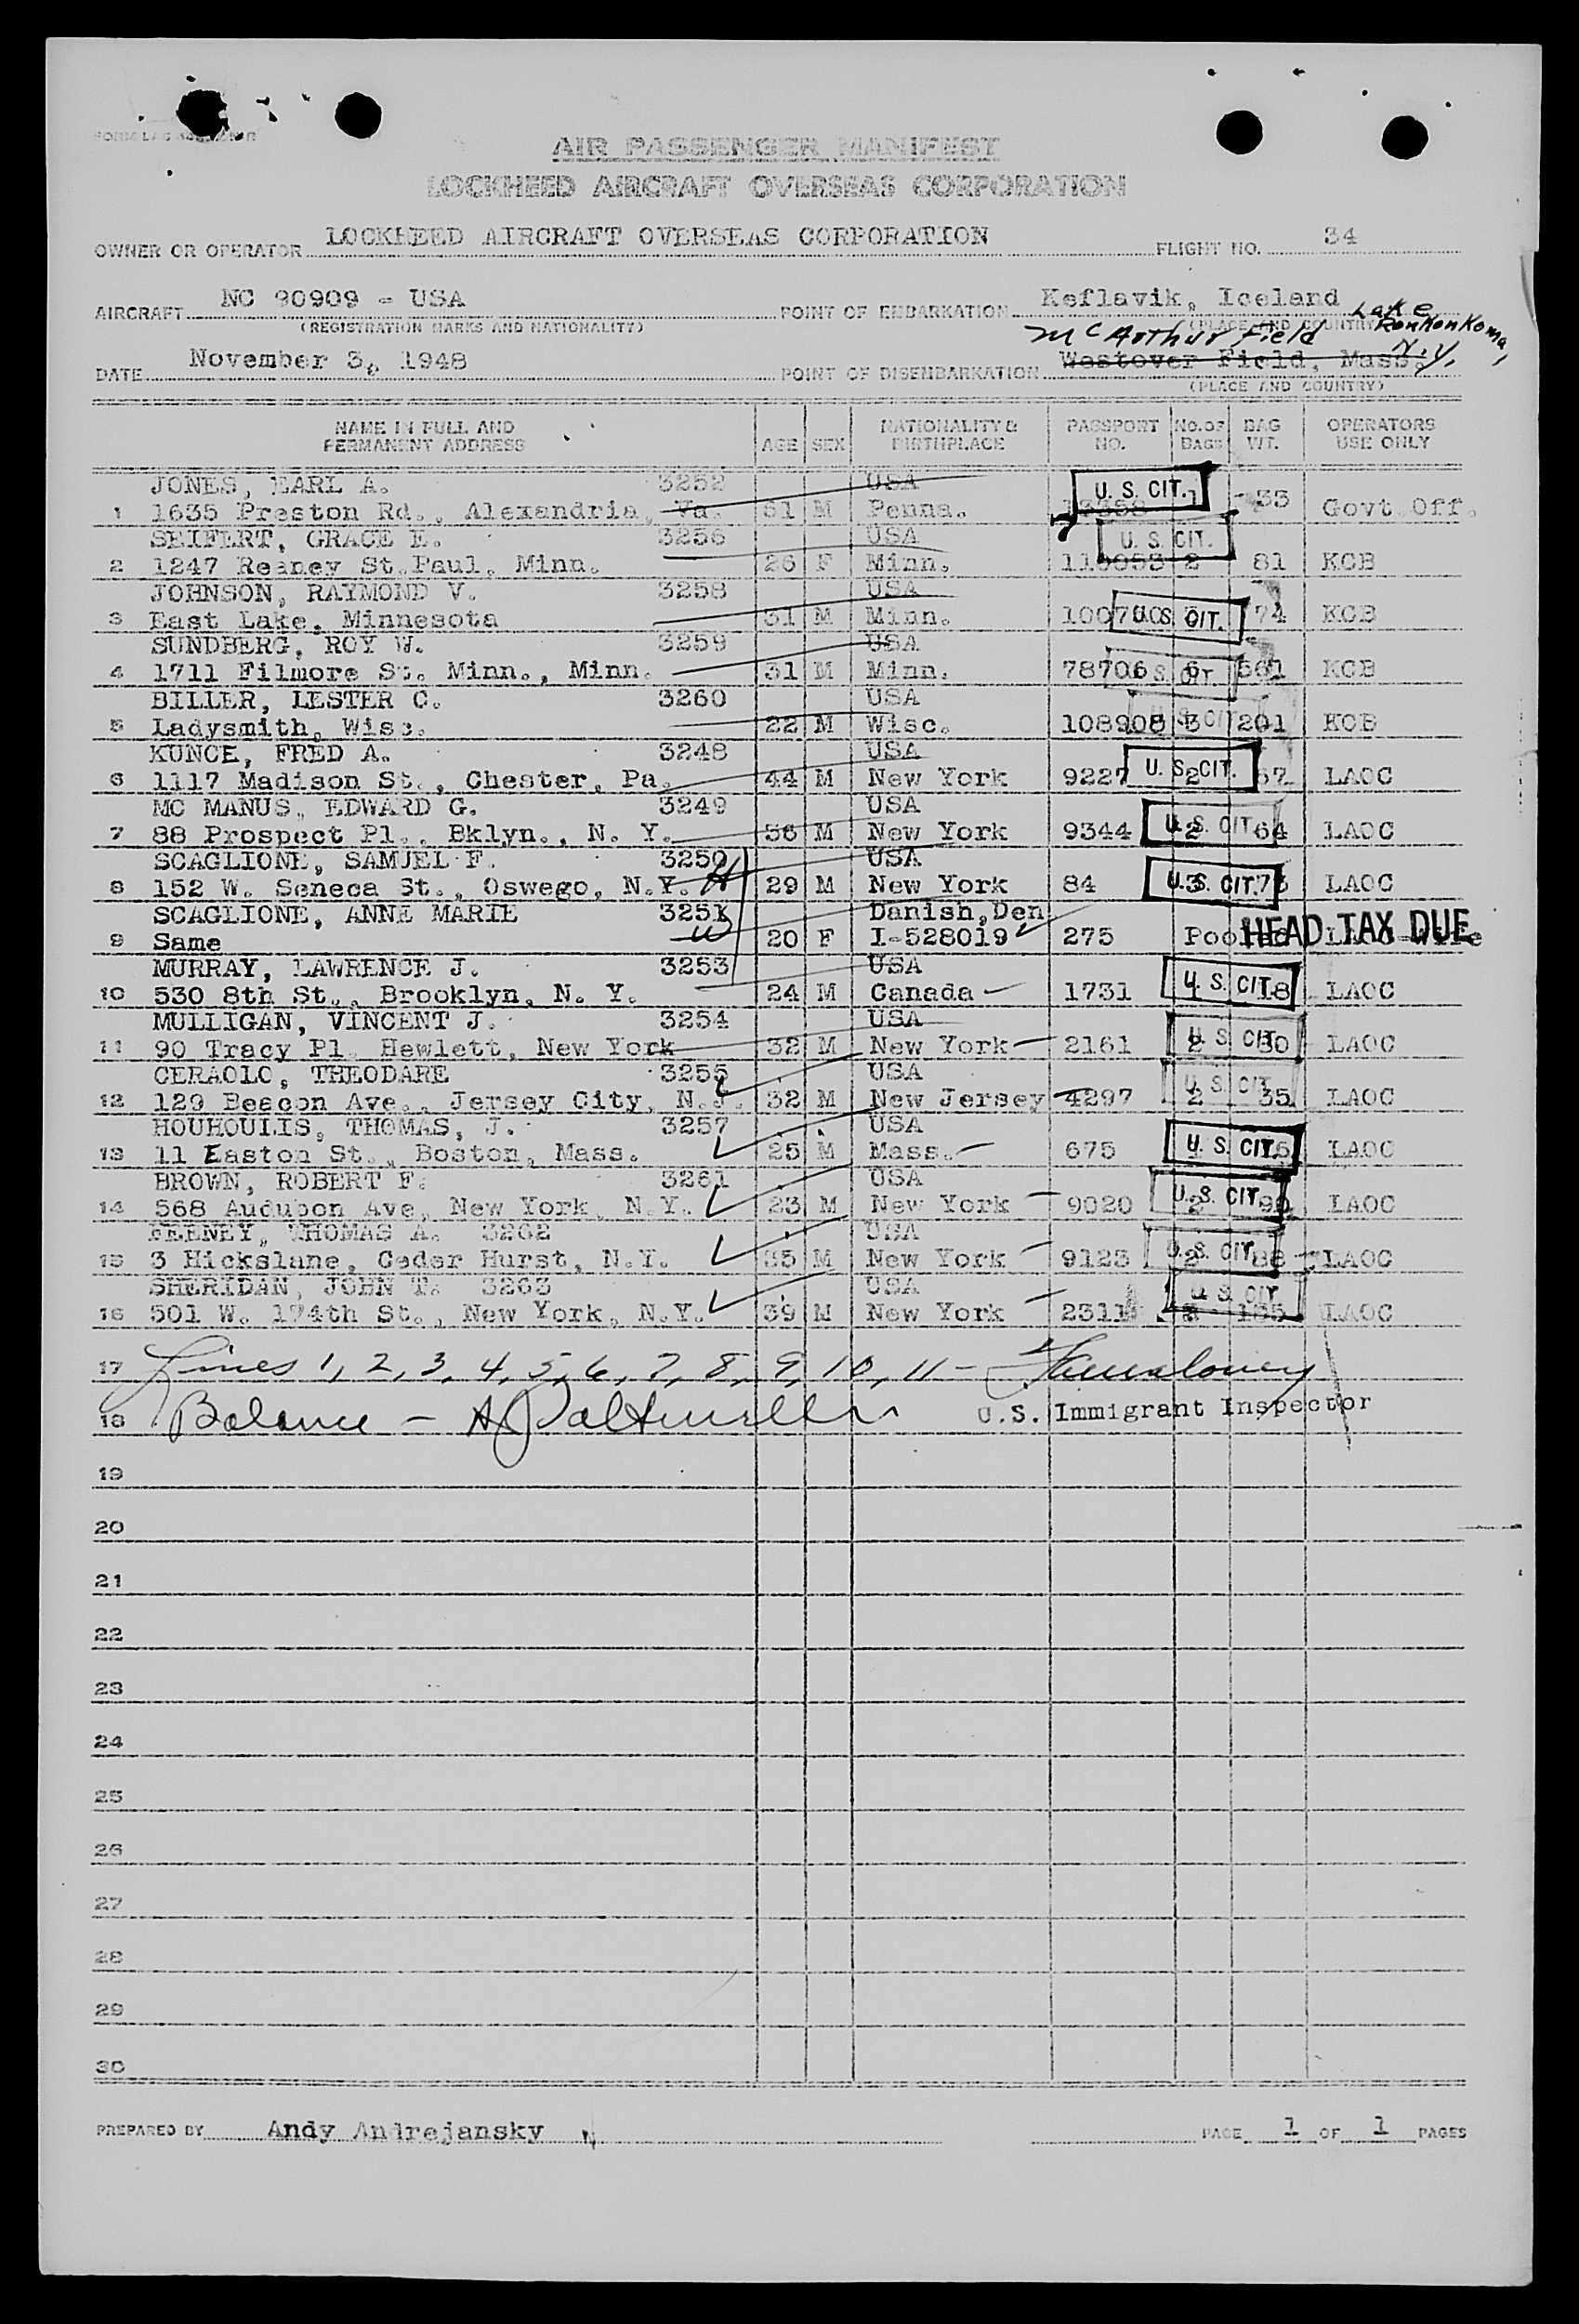 AIR PASSENGER MANIFEST
LOCKHEED AIRCRAFT OVERSEAS CORPORATION
OWNER OR OPERATOR LOCKHEED AIRCRAFT OVERSEAS CORPORATION FLIGHT NO. 34
AIRCRAFT NC 90909 - USA POINT OF EMBARKATION Keflavik, Iceland
(REGISTRATION MARKS AND NATIONALITY) (PLACE AND COUNTRY)
McArthur Field Lake Ronkonkoma, N.Y.
DATE November 3, 1948 POINT OF DISEMBARKATION Westover Field, Mass.
(PLACE AND COUNTRY)
NAME IN FULL AND PERMANENT ADDRESS AGE SEX NATIONALITY & BIRTHPLACE PASSPORT NO. NO. OF BAGS BAG WT. OPERATORS USE ONLY
JONES, EARL A. 3252 USA U. S. CIT.
1 1635 Preston Rd., Alexandria, Va. 51 M Penna. 1 33 Govt. Off.
SEIFERT, GRACE E. 3256 USA U. S. CIT.
2 1247 Reaney St. Paul, Minn. 26 F Minn. 2 81 KCB
JOHNSON, RAYMOND V. 3258 USA
3 East Lake, Minnesota 31 M Minn. U.S. CIT. 74 KCB
SUNDBERG, ROY W. 3259 USA
4 1711 Filmore St. Minn., Minn. 31 M Minn. 78706 U.S. CIT 6 561 KCB
BILLER, LESTER C. 3260 USA
5 Ladysmith, Wisc. 22 M Wisc. 108908 U.S. CIT 3 201 KCB
KUNCE, FRED A. 3248 USA
6 1117 Madison St., Chester, Pa. 44 M New York 9227 U. S. CIT. 2 67 LAOC
MC MANUS, EDWARD G. 3249 USA
7 88 Prospect Pl., Bklyn., N. Y. 56 M New York 9344 U. S. CIT. 2 64 LAOC
SCAGLIONE, SAMUEL F. 3250 USA
8 152 W. Seneca St., Oswego, N.Y. H 29 M New York 84 U.S. CIT. 3 73 LAOC
SCAGLIONE, ANNE MARIE 3251 Danish, Den
9 Same W 20 F I-528019 275 Pooled HEAD TAX DUE LAOC-Wife
MURRAY, LAWRENCE J. 3253 USA
10 530 8th St., Brooklyn, N. Y. 24 M Canada 1731 U. S. CIT. 1 18 LAOC
MULLIGAN, VINCENT J. 3254 USA
11 90 Tracy Pl. Hewlett, New York 32 M New York 2161 U. S. CIT. 2 30 LAOC
CERAOLO, THEODARE 3255 USA
12 129 Beacon Ave., Jersey City, N.J. 32 M New Jersey 4297 U. S. CIT. 2 35 LAOC
HOUHOULIS, THOMAS, J. 3257 USA
13 11 Easton St., Boston, Mass. 25 M Mass. 675 U. S. CIT. LAOC
BROWN, ROBERT F. 3261 USA
14 568 Audubon Ave, New York, N.Y. 23 M New York 9020 U.S. CIT. 2 90 LAOC
FEENEY, THOMAS A. 3262 USA
15 3 Hickslane, Cedar Hurst, N.Y. 35 M New York 9123 U.S. CIT. 2 88 LAOC
SHERIDAN, JOHN T. 3263 USA
16 501 W. 174th St., New York, N.Y. 39 M New York 2311 U. S. CIT. 135 LAOC
17 Lines 1, 2, 3, 4, 5, 6, 7, 8, 9, 10, 11 -
18 Balance - U.S. Immigrant Inspector
19
20
21
22
23
24
25
26
27
28
29
30
PREPARED BY Andy Andrejansky PAGE 1 OF 1 PAGES